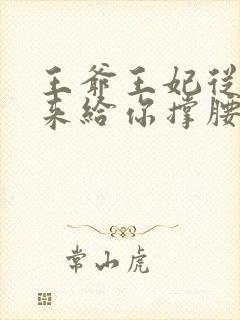 王爺王妃從
来給你撐腰
常山虎